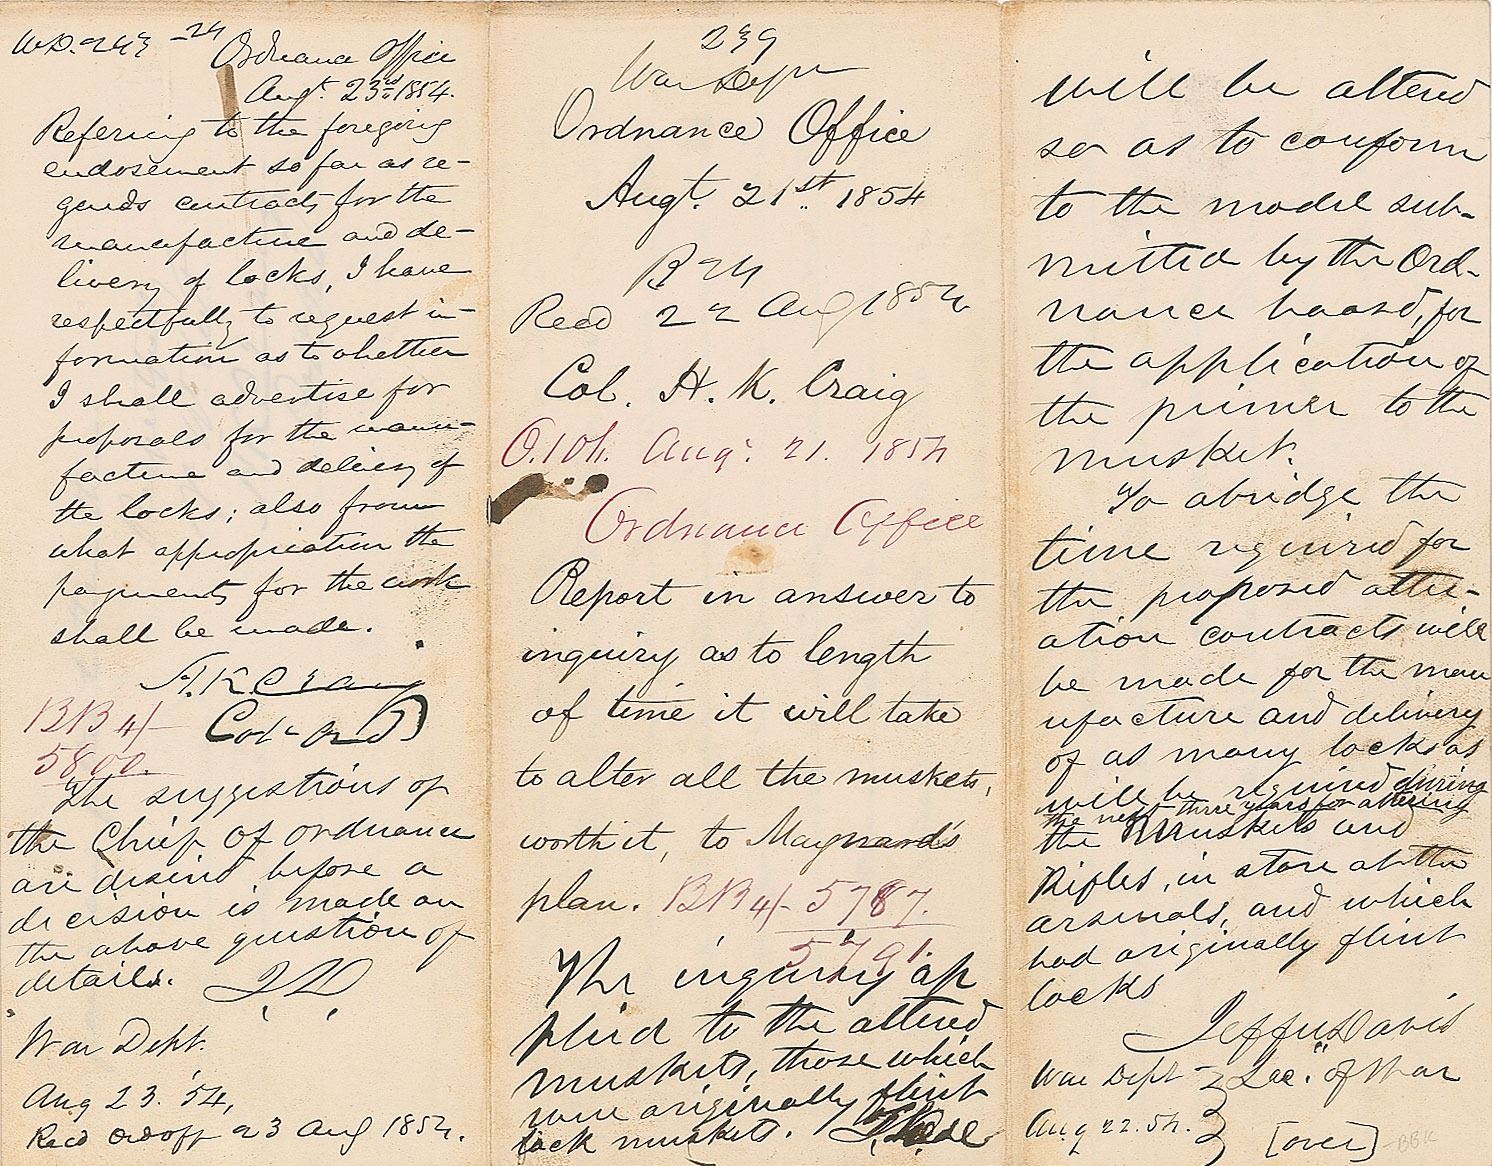 W.D. 243 -24
Ordnance Office
Augt. 23rd 1854.
Refering to the foregoing
endosement so far as re-
gards contracts for the
manufacture and de-
livery of locks, I have
respectfully to request in-
formation as to whether
I shall advertise for
proposals for the manu-
facture and delivery of
the locks; also from
what appropriation the
payments for the work
shall be made.
H.K. Craig
Col. Ord
BB4/-
5800.
The suggestions of
the Chief of ordnance
are desired before a
decision is made on
the above question of
details. J. D.
War Dept.
Aug 23. '54,
Recd Ord off 23 Aug 1854.
239
War Dept
Ordnance Office
Augt. 21st. 1854
B 24
Recd 22 Aug 1854
Col. H. K. Craig
Aug. 21. 1854
Ordnance Office
Report in answer to
inquiry as to length
of time it will take
to alter all the muskets,
worth it, to Maynard's
plan. BB4/- 5787.
5791.
The inquiry ap
plied to the altered
muskets, those which
were originally flint
lock muskets.
will be altered
so as to conform
to the model sub-
mitted by the Ord-
nance board, for
the application of
the primer to the
musket.
To abridge the
time required for
the proposed alter-
ation contracts will
be made for the man
ufacture and delivery
of as many locks as
will be required during
the next three years for altering
the Muskets and
Rifles, in store at the
arsenals, and which
had originally flint
locks
Jeffn Davis
War Dept Sec. of War
Aug 22. 54. [over]
BBK